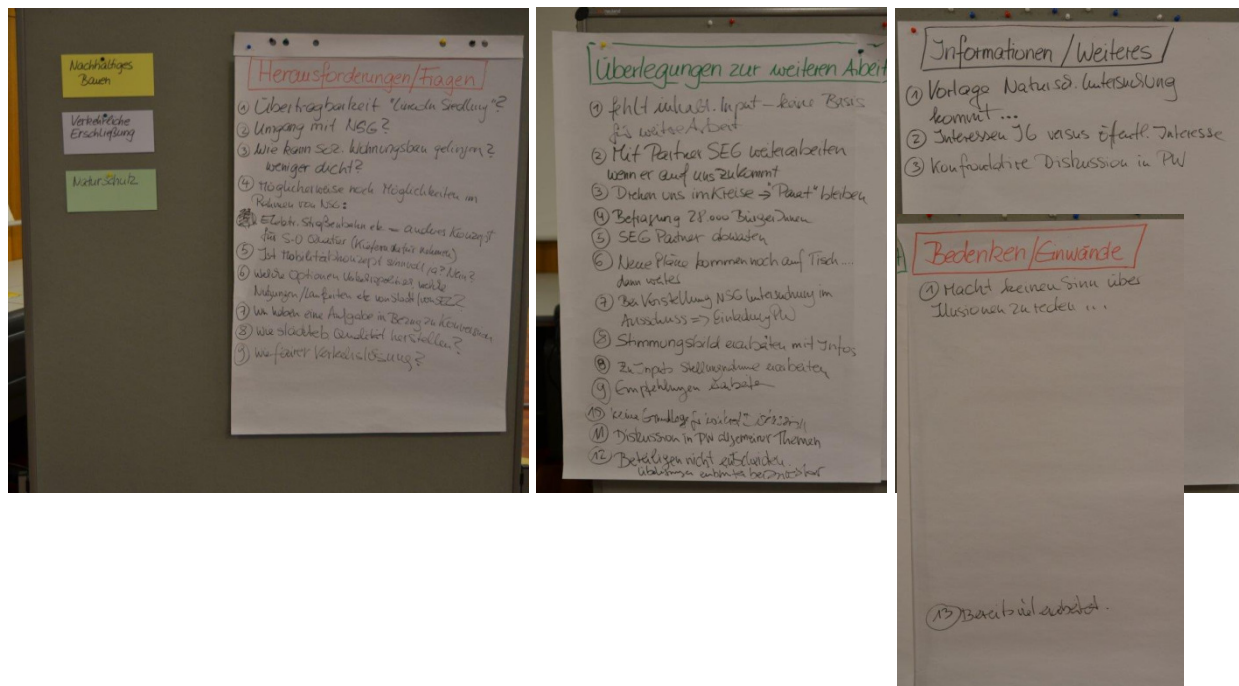 Nachhaltiges
Bauen
Verkehrliche
Erschließung
Naturschutz
Herausforderungen/Fragen
① Übertragbarkeit "Lincoln Siedlung"?
② Umgang mit NSG?
③ Wie kann soz. Wohnungsbau gelingen?
weniger dicht?
④ Möglicherweise noch Möglichkeiten im
Rahmen von NSG?
Elektr. Straßenbahn etc – anderes Konzept
für S-O Quartier
⑤ Ist Mobilitätskonzept sinnvoll ja? Nein?
⑥ welche Optionen
Nutzungen/Laufzeiten etc von Stadt
⑦ Wir haben eine Aufgabe in Bezug zu Konversion
⑧ wie städteb. Qualität herstellen?
⑨ wie fairer Verkehrslösung?
Überlegungen zur weiteren Arbeit
① fehlt inhalt. Input – keine Basis
für weitere Arbeit
② Mit Partner SEG weiterarbeiten
wenn er auf uns zukommt
③ Drehen uns im Kreise → bleiben
④ Befragung 28.000 BürgerInnen
⑤ SEG Partner
⑥ Neue Pläne kommen noch auf Tisch...
dann weiter
⑦ Bei Vorstellung NSG Untersuchung im
Ausschuss => Einladung PW
⑧ Stimmungsbild erarbeiten mit Infos
⑧ Zu Inputs Stellungnahme erarbeiten
⑨ Empfehlungen erarbeiten
⑩ keine Grundlage für
⑪ Diskussion in PW allgemeiner Themen
⑫ Beteiligen nicht entscheiden
Informationen/Weiteres
① Vorlage Natursch. Untersuchung
kommt...
② Interessen IG versus öffentl. Interesse
③ Konfrontative Diskussion in PW
Bedenken/Einwände
① Macht keinen Sinn über
Illusionen zu reden ...
⑬ Bereits viel erarbeitet.